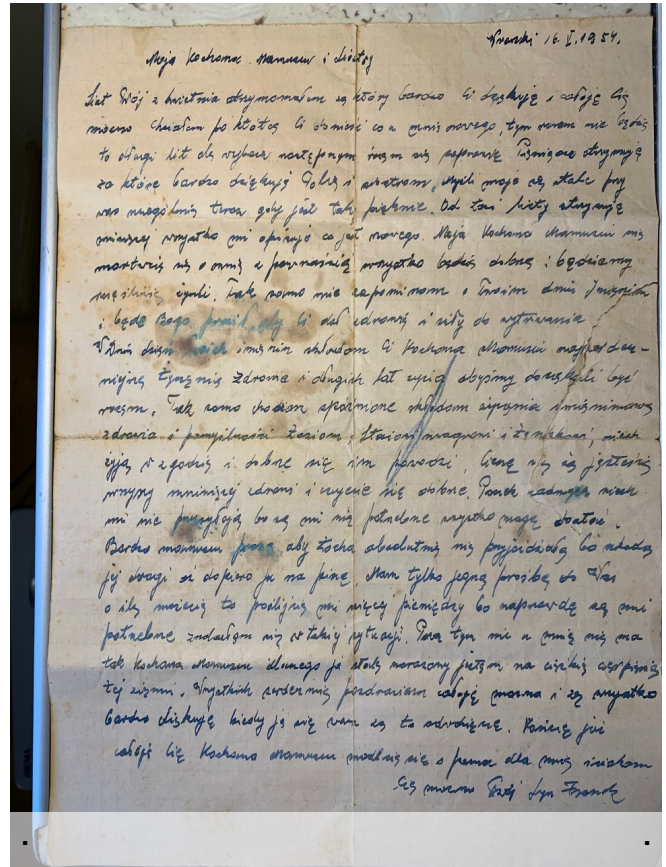 Wronki 16. V. 1954.
Moja Kochana Mamusiu i siostry
List Twój z kwietnia otrzymałem za który bardzo Ci dziękuję i całuję Cię
mocno Chciałem po krótce Ci donieść co u mnie nowego, tym razem nie będzie
to długi list ale wybacz następnym razem się poprawię Pieniądze otrzymuję
za które bardzo dziękuję Tobie i siostrom Myśli moje są stale przy
was szczególnie teraz gdy jest tak pięknie. Od listy otrzymuję
wszystko mi opisuje co jest nowego. Moja Kochana Mamusiu nie
martwcie się o mnie z pewnością wszystko będzie dobrze i będziemy
szczęśliwie żyli. Tak samo nie zapominam o Twoim dniu Imienin
i będę Boga prosił aby Ci dał zdrowie i siły do wytrwania
W dniu Twoich imienin składam Ci Kochana Mamusiu najserdecz-
niejsze życzenia zdrowia i długich lat życia abyśmy doczekali być
razem. Tak samo chociaż spóźnione składam życzenia imieninowe
zdrowia i pomyślności Zosiom, Stasiowi i niech
żyją w zgodzie i dobrze się im powodzi. Cieszę się że jesteście
wszyscy zdrowi i czujecie się dobrze. Paczek żadnych niech
mi nie przysyłają bo są mi nie potrzebne wszystko mogę dostać.
Bardzo mamusiu proszę aby Zocha absolutnie nie przyjeżdżała bo szkoda
jej drogi aż dopiero ja napiszę. Mam tylko jedną prośbę do Was
o ile możecie to poślijcie mi więcej pieniędzy bo naprawdę są mi
potrzebne znalazłem się w takiej sytuacji. Poza tym nic u mnie nie ma
tak Kochana Mamusiu dlaczego ja stale narażony jestem na ciężkie cierpienia
tej ziemi. Wszystkich serdecznie pozdrawiam całuję mocno i za wszystko
bardzo dziękuję kiedy ja się wam za to odwdzięczę. Kończę już
całuję Cię Kochana Mamusiu módlcie się o dla mnie ściskam
Cię mocno Twój Syn